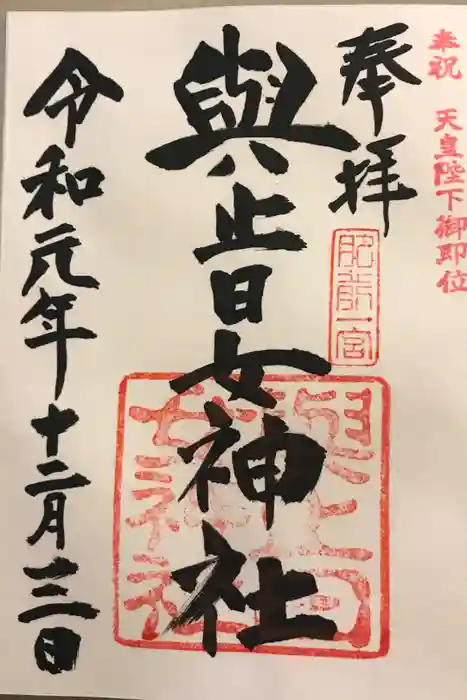 奉祝 天皇陛下御即位
奉拝
肥前一宮
與止日女神社
令和元年十二月三日